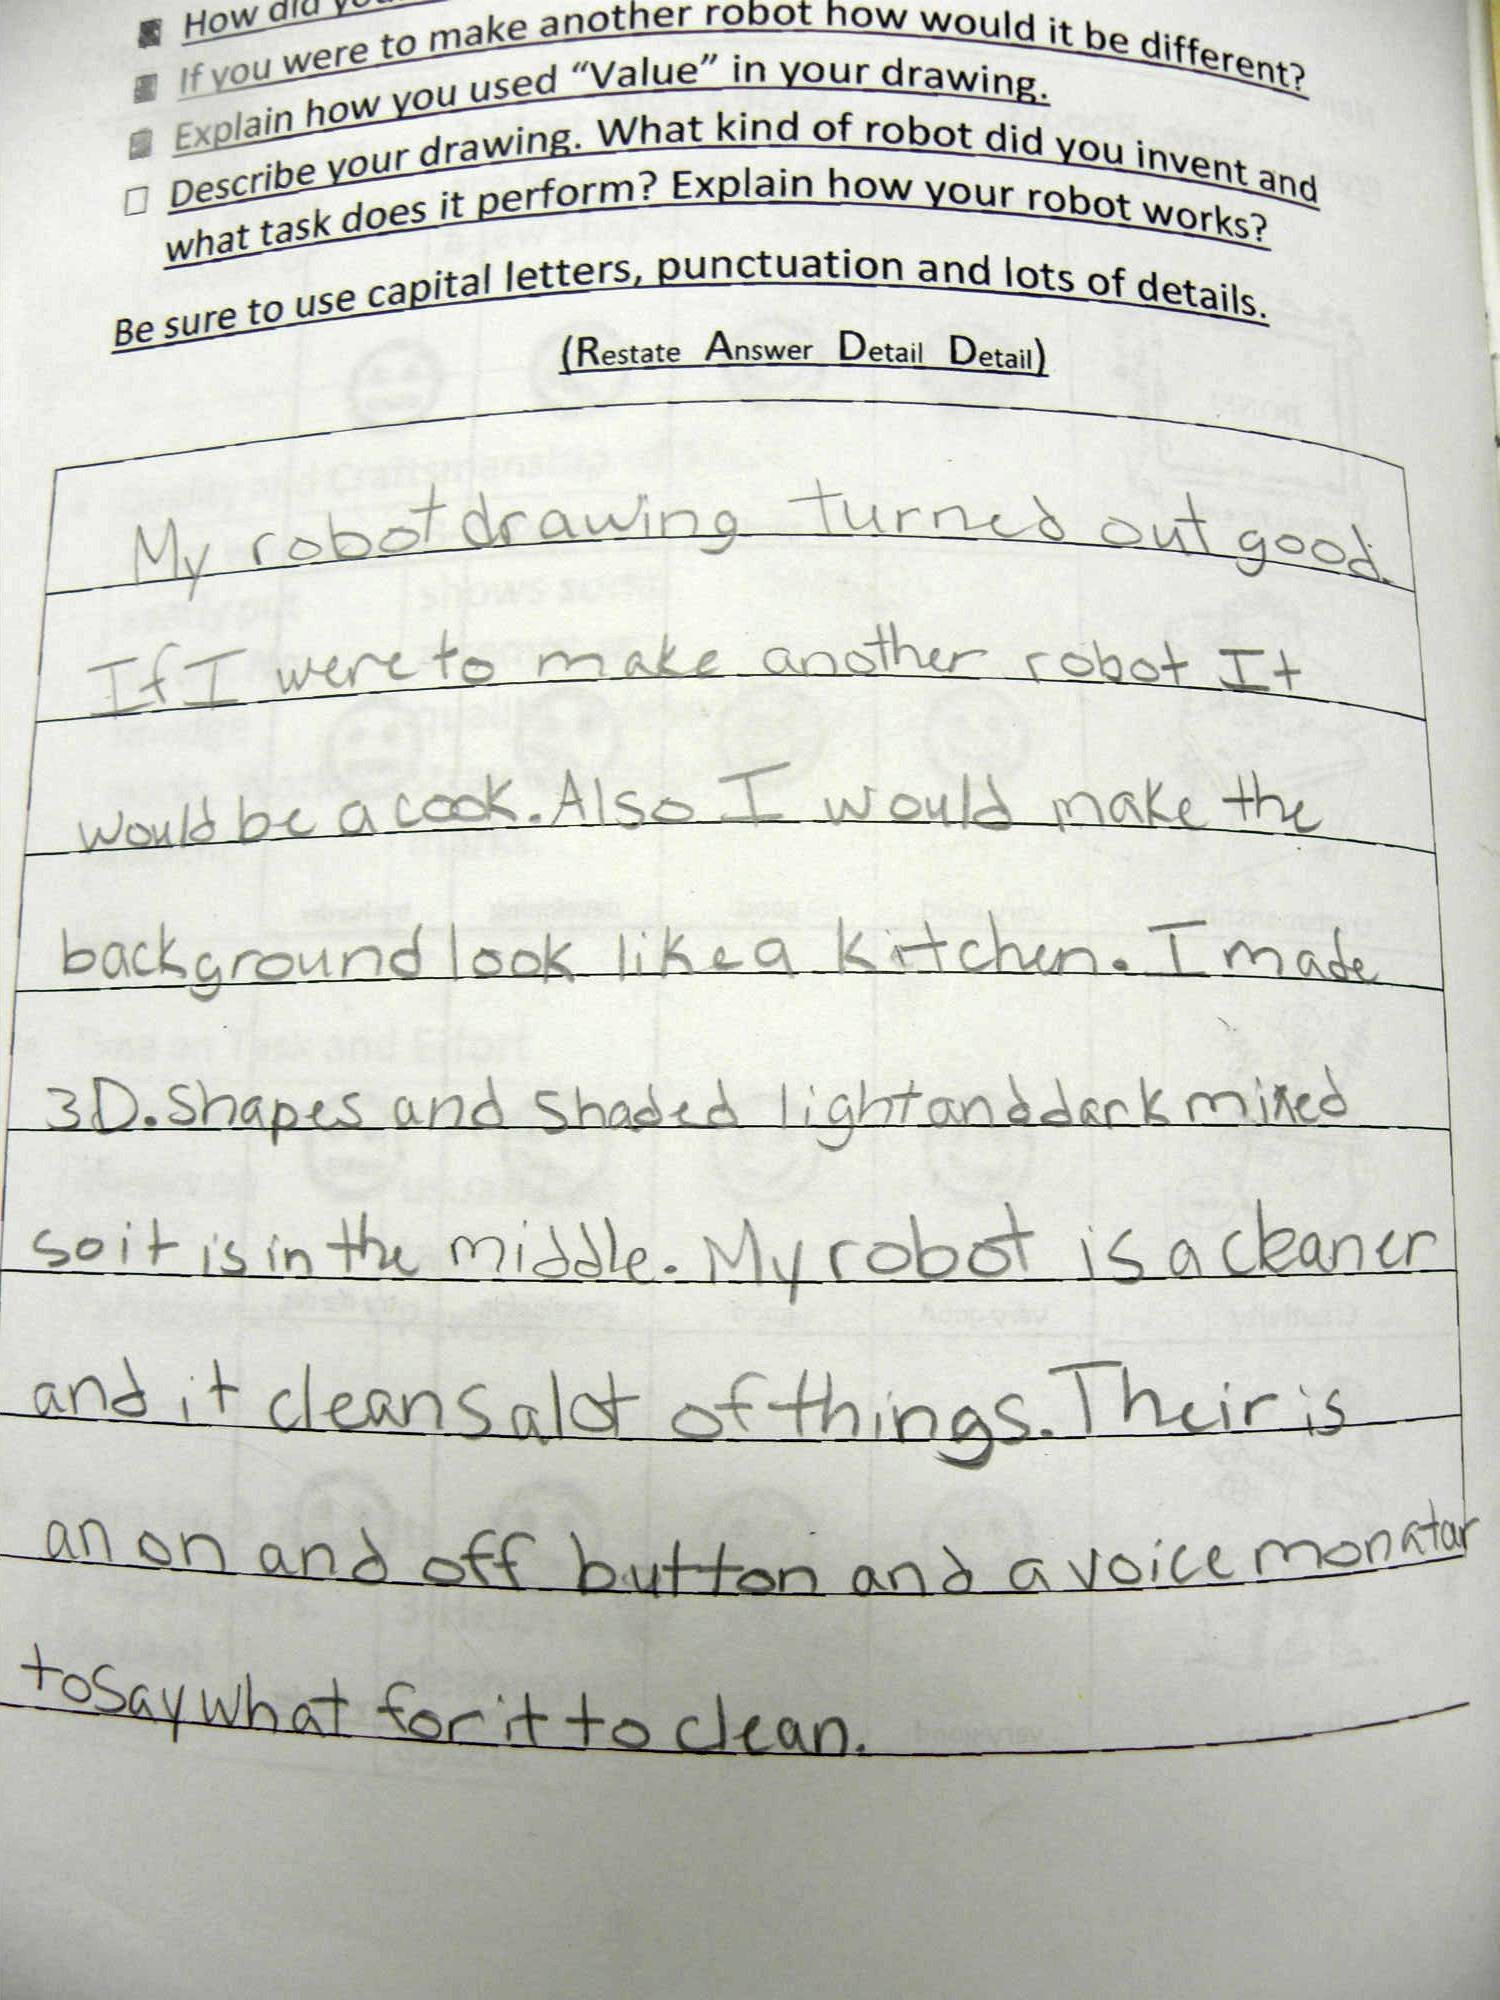 How did you
If you were to make another robot how would it be different?
Explain how you used “Value” in your drawing.
Describe your drawing. What kind of robot did you invent and
what task does it perform? Explain how your robot works?
Be sure to use capital letters, punctuation and lots of details.
(Restate Answer Detail Detail)
My robot drawing turned out good.
If I were to make another robot It
would be a cook. Also I would make the
background look like a kitchen. I made
3D. shapes and shaded light and dark mixed
so it is in the middle. My robot is a cleaner
and it cleans alot of things. Their is
an on and off button and a voice monatar
to say what for it to clean.